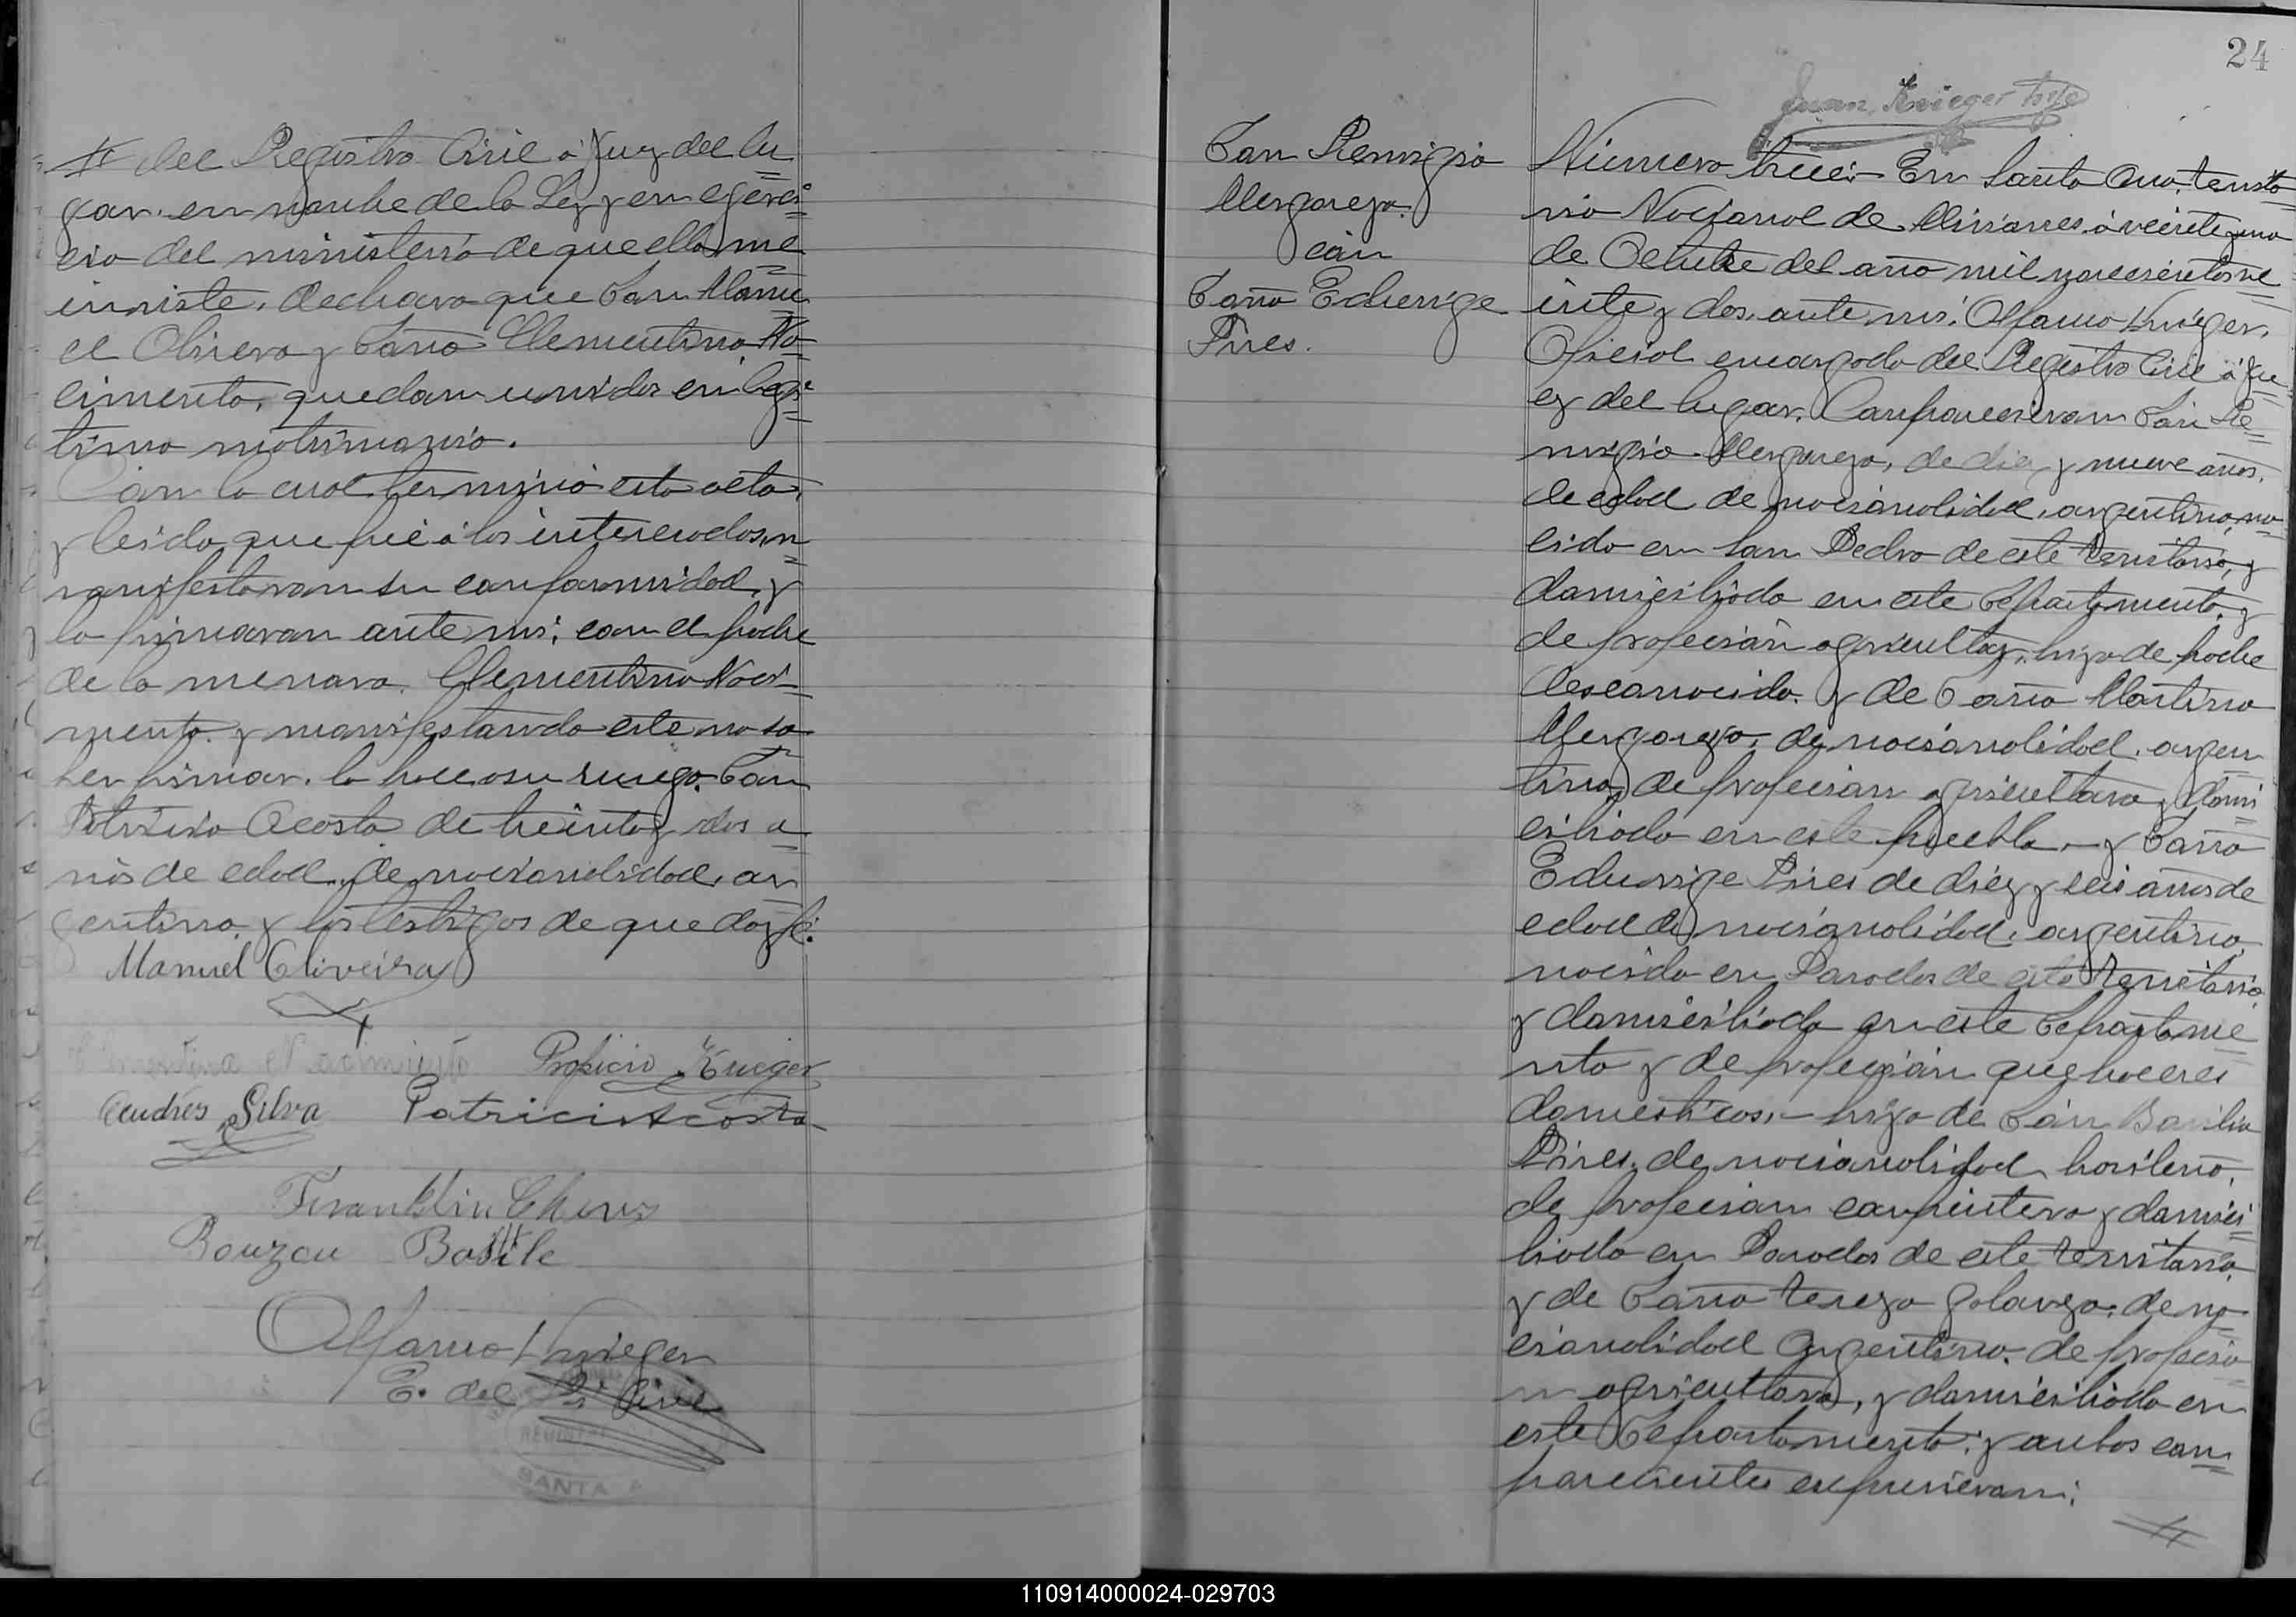 # del Registro Civil ó Juez del lu
gar. en nombre de la Ley y en egerci
cio del ministerio de que ella me
inviste. declaro que Don Manu
el Olivera y Doña Clementina Na
cimento, quedan unidos en legi
timo matrimonio.
Con lo cual terminó esta acta,
y leida que fué á los interesados, m
manifestaron su conformidad y
la firmaron ante mi, con el padre
de la menora. Clementino Naci
mento. y manifestando este no sa
ber firmar. lo hace a su ruego. Don
Patricio Acosta de treinta y dos a
ños de edad. de nacionalidad, ar
gentino. y los testigos de que doy fé.
Manuel Oliveira
Clementina Nacimiento Proficio Krieger
Andres Silva Patricio Acosta
Franklin
Bouzou Basile
Alfamo Krieger
E. del R. Civil
REGISTRO
SANTA A
24
Juan Krieger hijo
Don Remigio
Mergarejo.
con
Doña Eduvige
Pires.
Numero trece. En Santa Ana, territo
rio Nacional de Misiones, á veinte y uno
de Octubre del año mil novecientos ve
inte y dos, ante mi. Alfamo Krieger,
Oficial encargado del Registro Civil ó Ju
ez del lugar. Comparecieron Don Re
migio Mergarejo, de diez y nueve años,
de edad de nacionalidad, argentino, na
cido en San Pedro de este territorio, y
domiciliado en este Departamento, y
de profesion agricultor, hijo de padre
desconocido. y de Doña Martina
Mergarejo, de nacionalidad. argen
tina, de profecion agricultora, y domi
ciliada en este pueblo, - y Doña
Eduvige Pires de diéz y seis años de
edad de nacionalidad, argentina,
nacida en Posadas de este territorio,
y domiciliada en este Departame
nto y de profecion quehaceres
domesticos, - hija de Don Basilio
Pires, de nacionalidad brasilero,
de profecion carpintero y domici
liado en Posadas de este territorio,
y de Doña Tereza Golarza. de na
cionalidad Argentina. de profecio
n agricultora, y domiciliada en
este Departamento; y ambos com
parecientes expusieron:
#
110914000024-029703